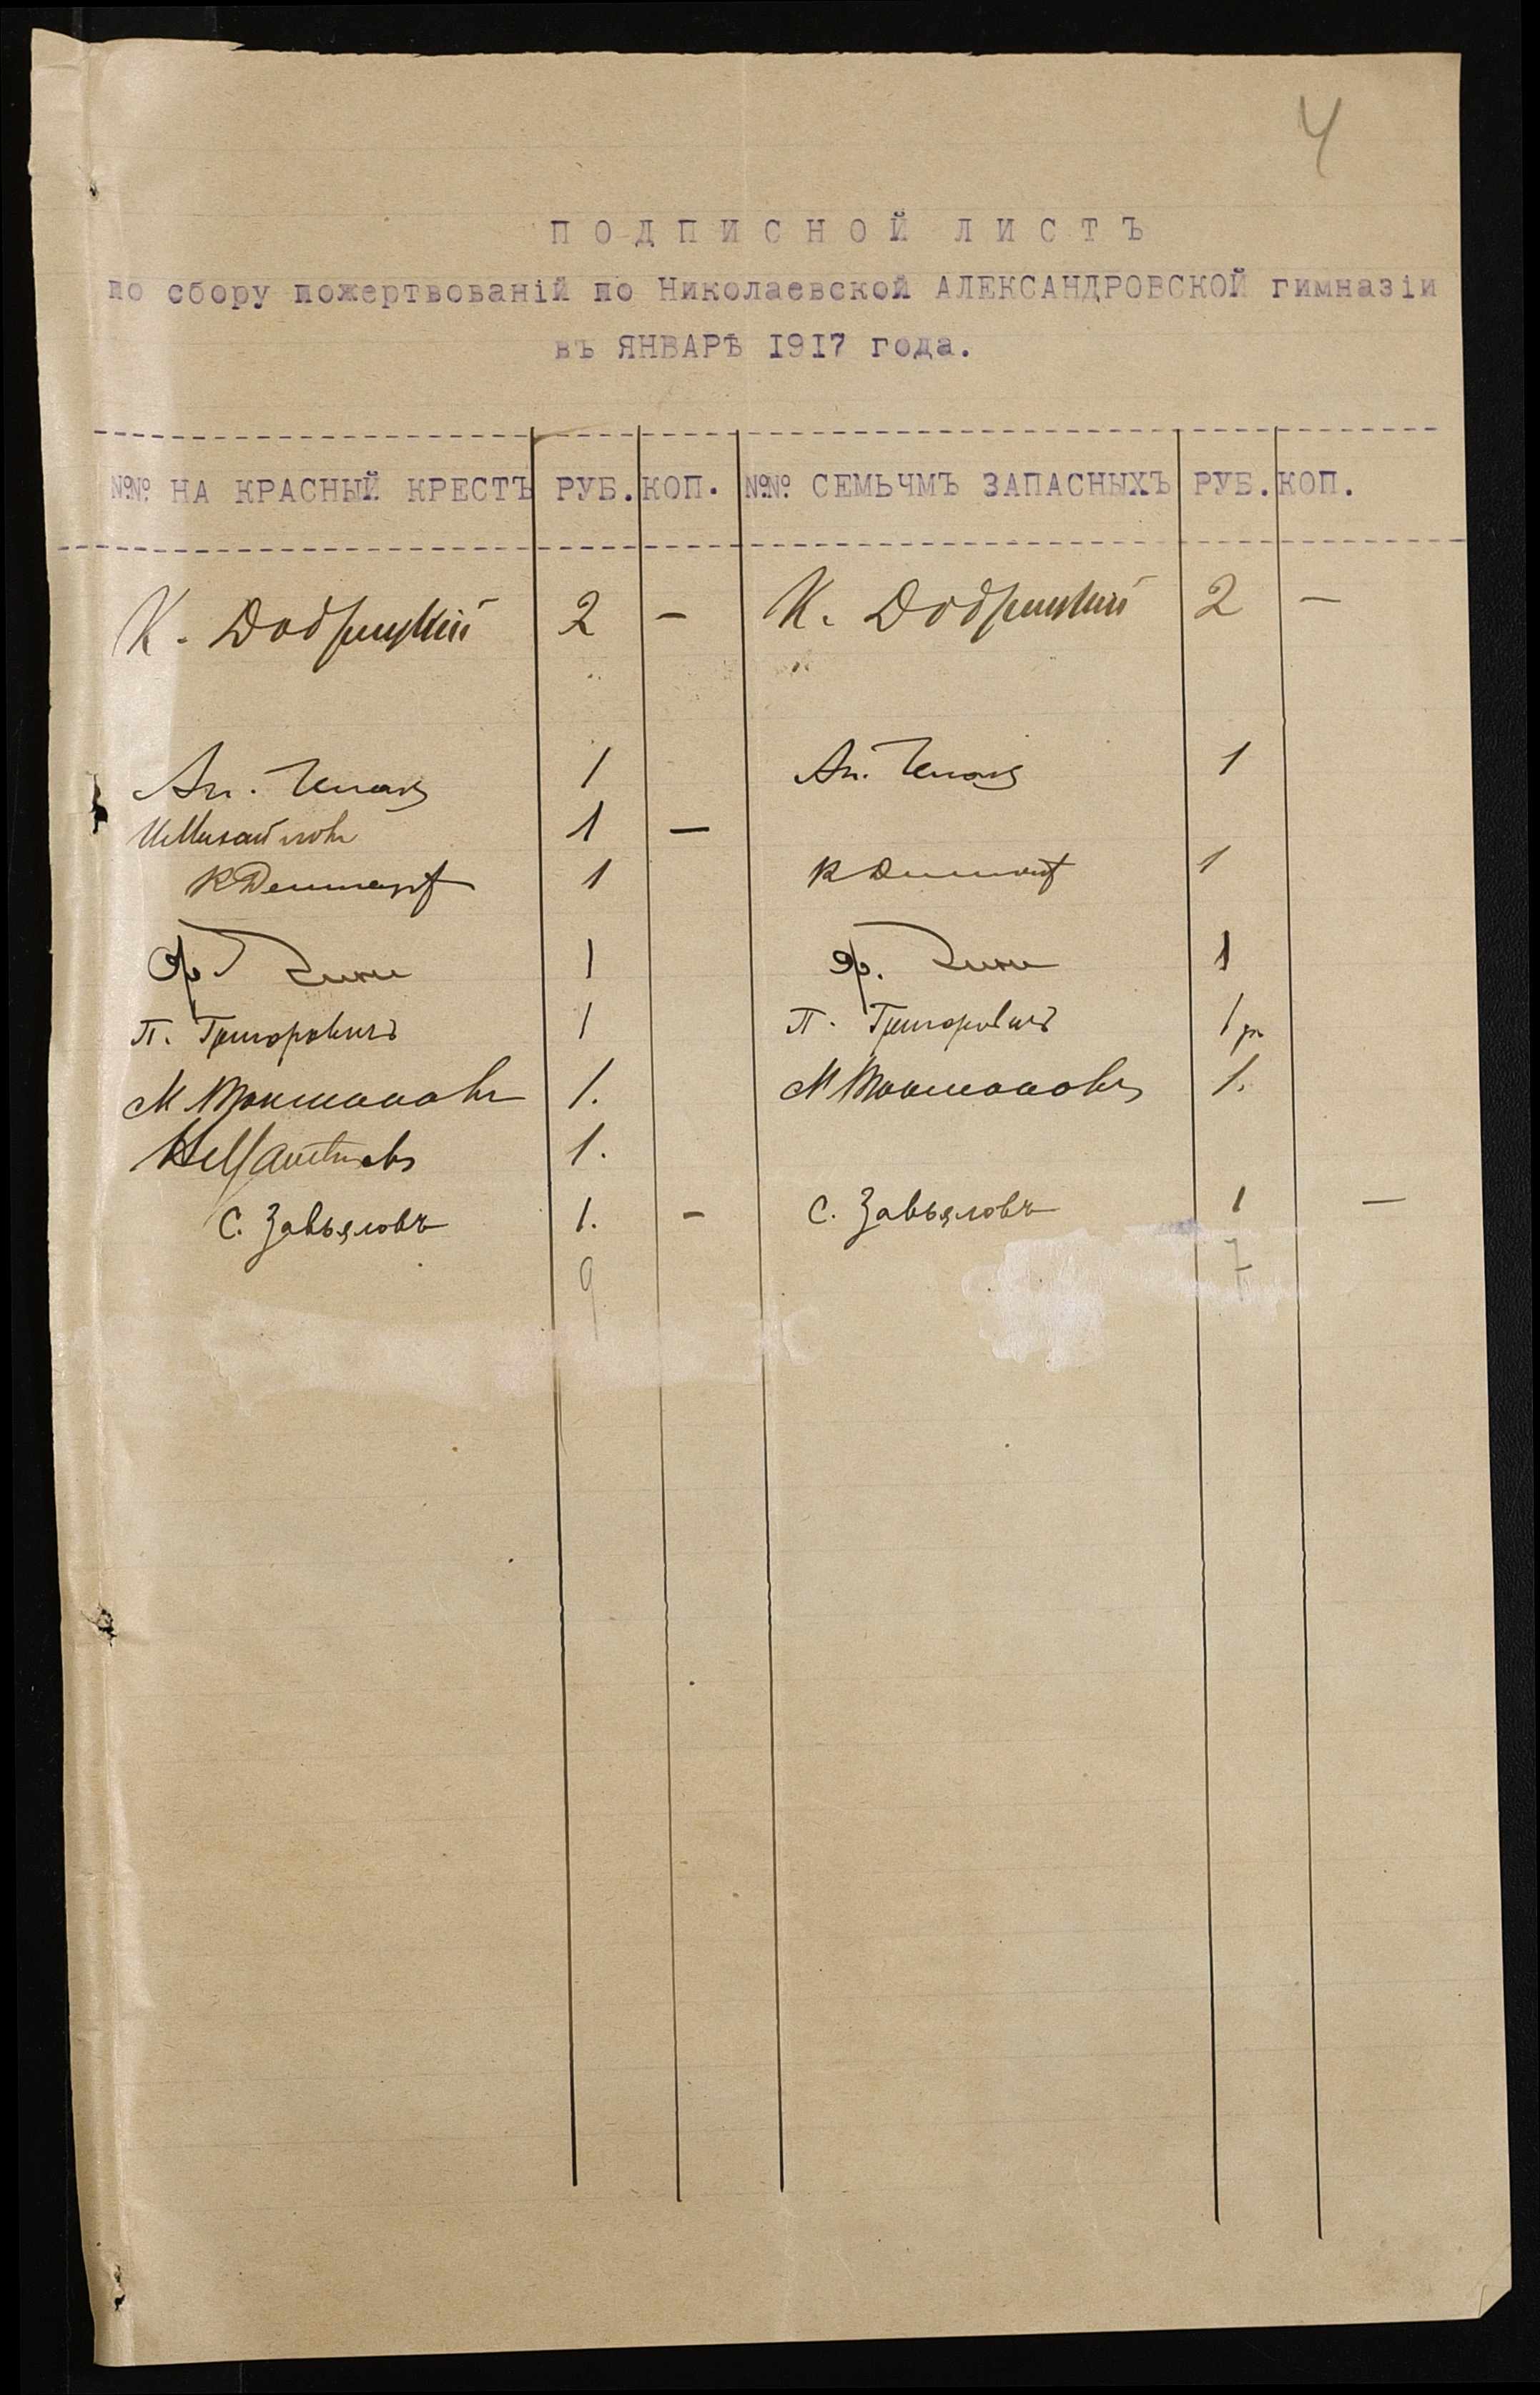 4
ПОДПИСНОЙ ЛИСТЪ
по сбору пожертвованій по Николаевской АЛЕКСАНДРОВСКОЙ гимназіи
въ ЯНВАРѢ 1917 года.
№№ НА КРАСНЫЙ КРЕСТЪ РУБ. КОП. №№ СЕМЬЧМЪ ЗАПАСНЫХЪ РУБ. КОП.
К. 2 – К. 2 –
Ан. 1 Ан. 1
И Михайловъ 1 –
К 1 К 1
Фр. 1 Фр. 1
П. Григоровичъ 1 П. Григоровичъ 1 р
М 1. М 1.
1.
С. Завьяловъ 1. – С. Завьяловъ 1 –
9 7